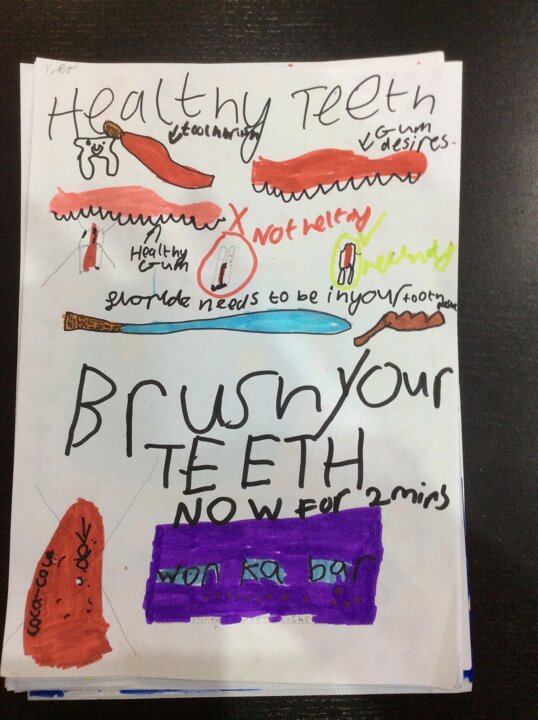 Healthy Teeth
Gum
desires
Healthy
Gum
Not helthy
needs to be in your tooth
Brush your
TEETH
NOW FOR 2 mins
coca-cola
won ka bar